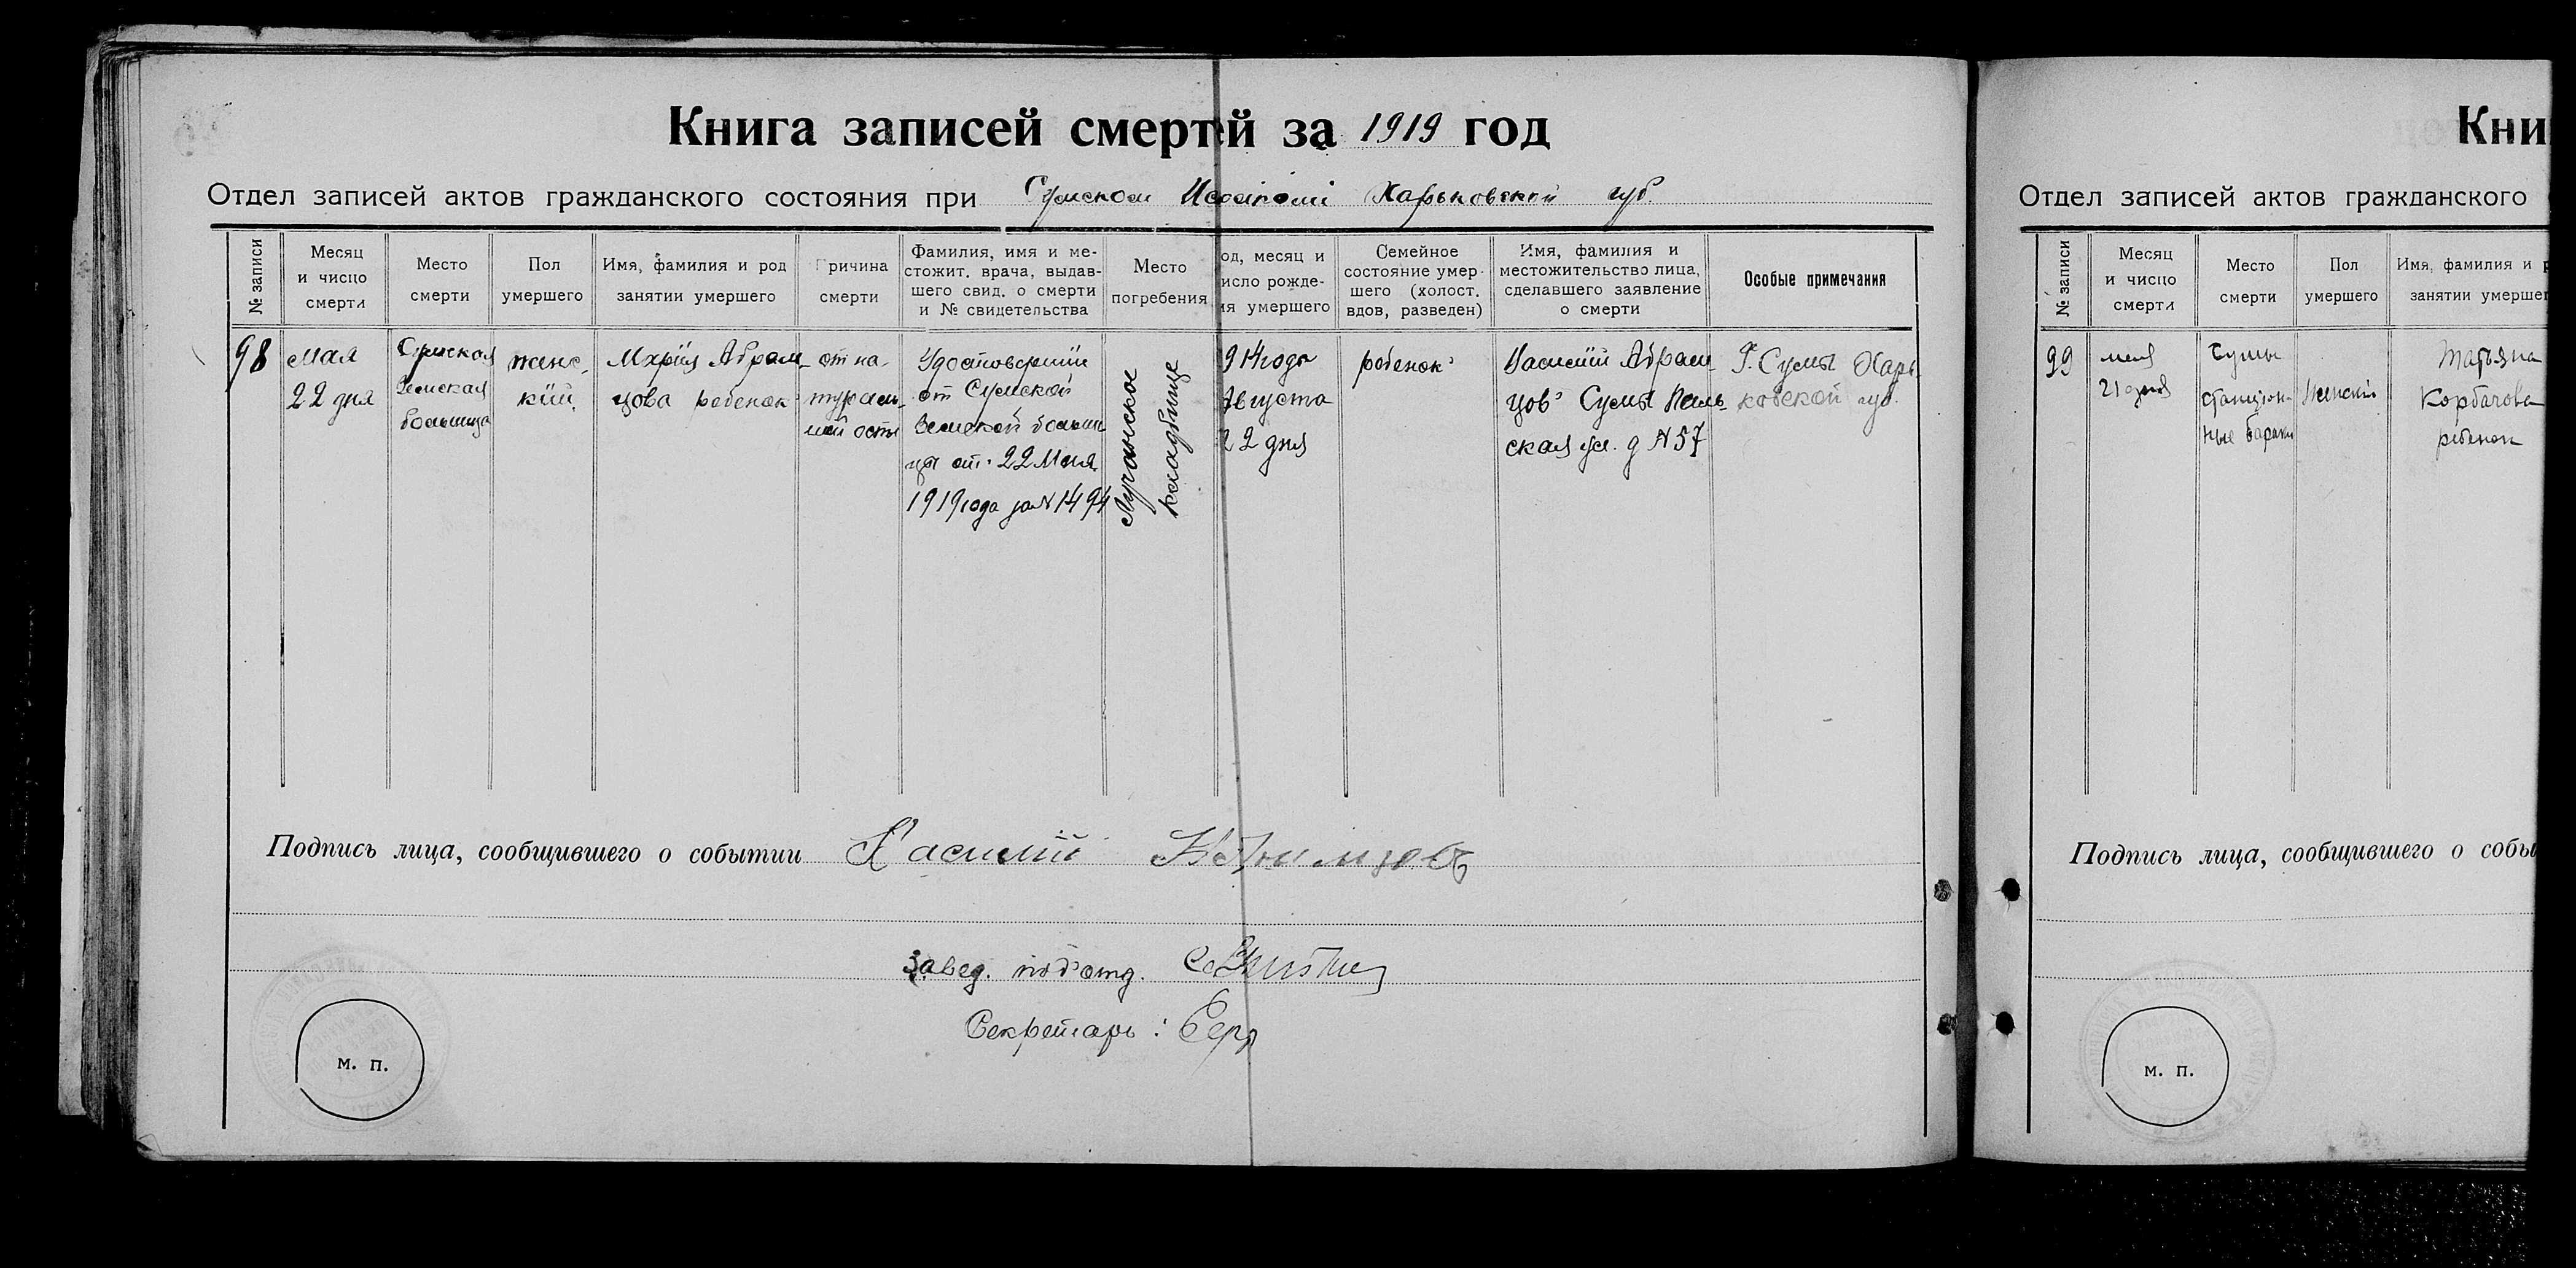 Книга записей смертей за 1919 год
Отдел записей актов гражданского состояния при Сумском Исполкомі Харьковской губ.
№ записи
Месяц
и число
смерти
Место
смерти
Пол
умершего
Имя, фамилия и род
занятии умершего
Причина
смерти
Фамилия, имя и ме-
стожит. врача, выдав-
шего свид. о смерти
и № свидетельства
Место
погребения
од, месяц и
исло рожде-
ия умершего
Семейное
состояние умер-
шего (холост,
вдов, разведен)
Имя, фамилия и
местожительство лица,
сделавшего заявление
о смерти
Особые примечания
98
Мая
22 дня
Сумская
Земская
больница
женс-
кий
Марія Абрам-
цова ребенок
от на-
тураль-
ной оспы
Удостоверенiи
от Сумской
Земской больни
цы от 22 Мая
1919 года за № 1494
Лучанское
кладбище
914 года
Августа
22 дня
ребенок
Василий Абрам-
цовъ Сумы
ская ул. д № 57
Г. Сумы Харь-
ковской губ.
Подпись лица, сообщившего о событии Василий
Завед. подотд.
Секретарь:
м. п.
Кни
Отдел записей актов гражданского
№ записи
Месяц
и число
смерти
Место
смерти
Пол
умершего
Имя, фамилия и р
занятии умершег
99
мая
21 дня
Сумы
станцiон-
ные бараки
Женскiй
Татьяна
Корбачова
ребенок
Подпись лица, сообщившего о собы
м. п.